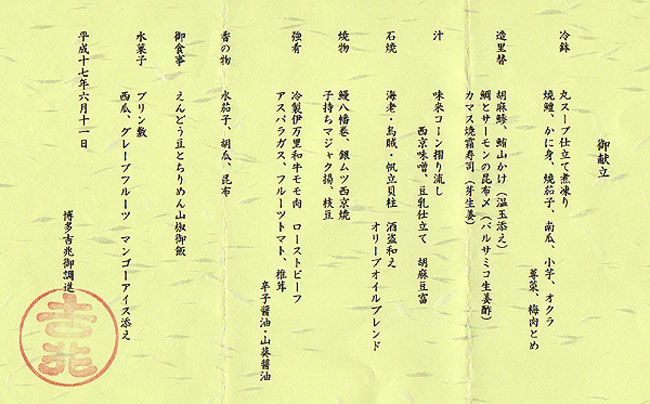 御献立
冷鉢
丸スープ仕立て煮凍り
焼鱧、かに身、焼茄子、南瓜、小芋、オクラ
蓴菜、梅肉とめ
造里替
胡麻鯵、鮪山かけ(温玉添え)
鯛とサーモンの昆布〆(バルサミコ生姜酢)
カマス焼霜寿司(芽生姜)
汁
味来コーン摺り流し
西京味噌、豆乳仕立て 胡麻豆富
石焼
海老・烏賊・帆立貝柱 酒盗和え
オリーブオイルブレンド
焼物
鰻八幡巻、銀ムツ西京焼
子持ちマジャク揚、枝豆
強肴
冷製伊万里和牛モモ肉 ローストビーフ
アスパラガス、フルーツトマト、椎茸
辛子醤油・山葵醤油
香の物
水茄子、胡瓜、昆布
御食事
えんどう豆とちりめん山椒御飯
水菓子
プリン数
西瓜、グレープフルーツ マンゴーアイス添え
平成十七年六月十一日
博多吉兆御調進
吉兆